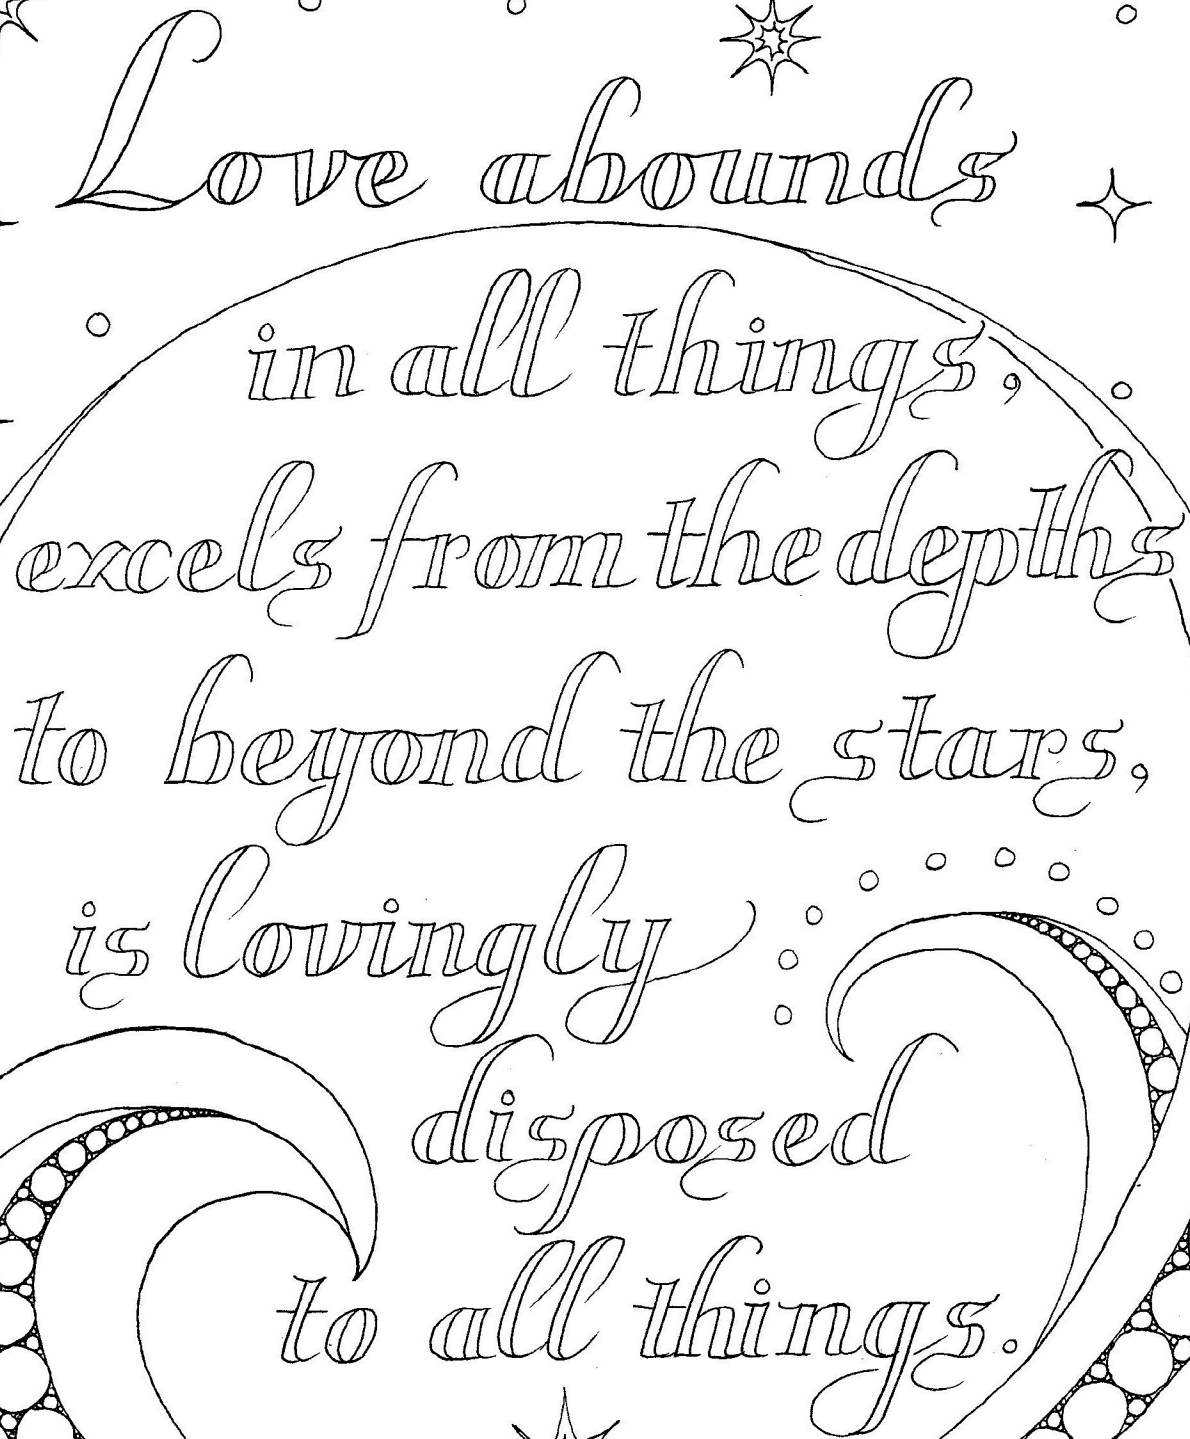 Love abounds
in all things,
excels from the depths
to beyond the stars,
is lovingly
disposed
to all things.